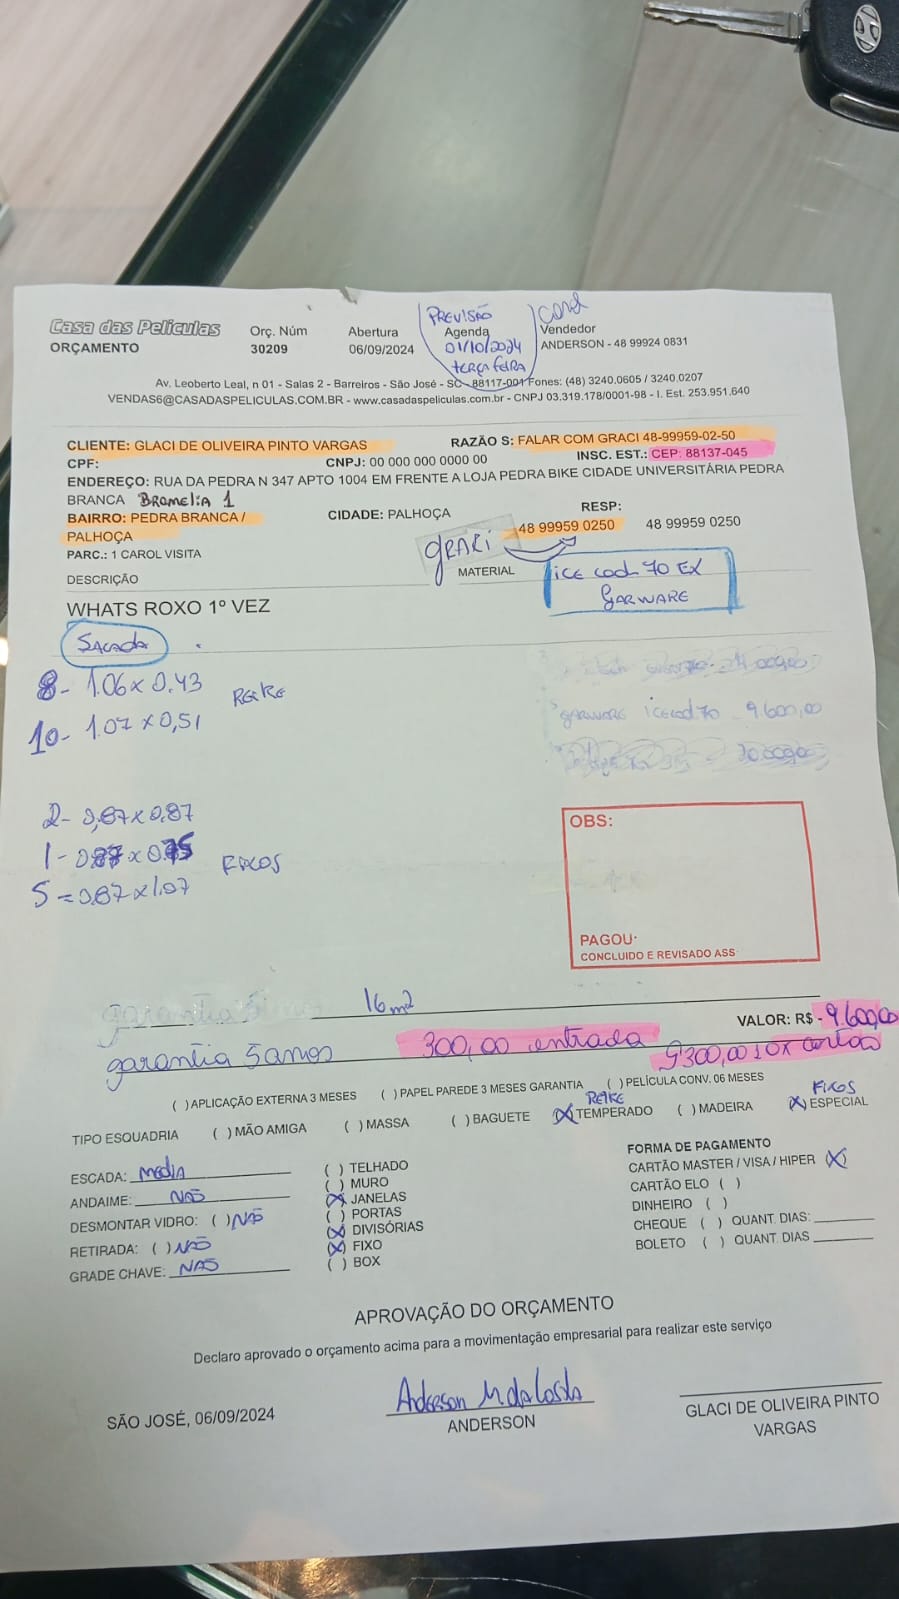 Casa das Peliculas
ORÇAMENTO
Orç. Núm
30209
Abertura
06/09/2024
PREVISÃO
Agenda
01/10/2024
terça feira
Vendedor
ANDERSON - 48 99924 0831
Av. Leoberto Leal, n 01 - Salas 2 - Barreiros - São José - SC - 88117-001 Fones: (48) 3240.0605 / 3240.0207
VENDAS6@CASADASPELICULAS.COM.BR - www.casadaspeliculas.com.br - CNPJ 03.319.178/0001-98 - I. Est. 253.951.640
CLIENTE: GLACI DE OLIVEIRA PINTO VARGAS
RAZÃO S: FALAR COM GRACI 48-99959-02-50
CPF:
CNPJ: 00 000 000 0000 00
INSC. EST.: CEP: 88137-045
ENDEREÇO: RUA DA PEDRA N 347 APTO 1004 EM FRENTE A LOJA PEDRA BIKE CIDADE UNIVERSITÁRIA PEDRA
BRANCA Bromelia 1
BAIRRO: PEDRA BRANCA /
PALHOÇA
CIDADE: PALHOÇA
RESP:
48 99959 0250 48 99959 0250
PARC.: 1 CAROL VISITA
DESCRIÇÃO
MATERIAL
ice cool 70 EX
GARWARE
WHATS ROXO 1º VEZ
Sacada
8- 1.06 x 0.43
10- 1.07 x 0,51
Reike
garware icecool 70 9.600,00
2- 0,87 x 0.87
5 = 0.87 x 1.07
Fixos
OBS:
PAGOU·
CONCLUIDO E REVISADO ASS
garantia 5 anos
16 m2
VALOR: R$ - 9.600,00
garantia 5 anos
300,00 entrada
9300,00 10x cartão
( ) APLICAÇÃO EXTERNA 3 MESES ( ) PAPEL PAREDE 3 MESES GARANTIA ( ) PELÍCULA CONV. 06 MESES
Reike
Fixos
TIPO ESQUADRIA ( ) MÃO AMIGA ( ) MASSA ( ) BAGUETE (X) TEMPERADO ( ) MADEIRA (X) ESPECIAL
ESCADA: Media
ANDAIME: NÃO
DESMONTAR VIDRO: ( ) NÃO
RETIRADA: ( ) NÃO
GRADE CHAVE: NÃO
( ) TELHADO
( ) MURO
(X) JANELAS
( ) PORTAS
(X) DIVISÓRIAS
(X) FIXO
( ) BOX
FORMA DE PAGAMENTO
CARTÃO MASTER / VISA / HIPER (X)
CARTÃO ELO ( )
DINHEIRO ( )
CHEQUE ( ) QUANT. DIAS:
BOLETO ( ) QUANT. DIAS
APROVAÇÃO DO ORÇAMENTO
Declaro aprovado o orçamento acima para a movimentação empresarial para realizar este serviço
SÃO JOSÉ, 06/09/2024
Anderson M da Costa
ANDERSON
GLACI DE OLIVEIRA PINTO
VARGAS